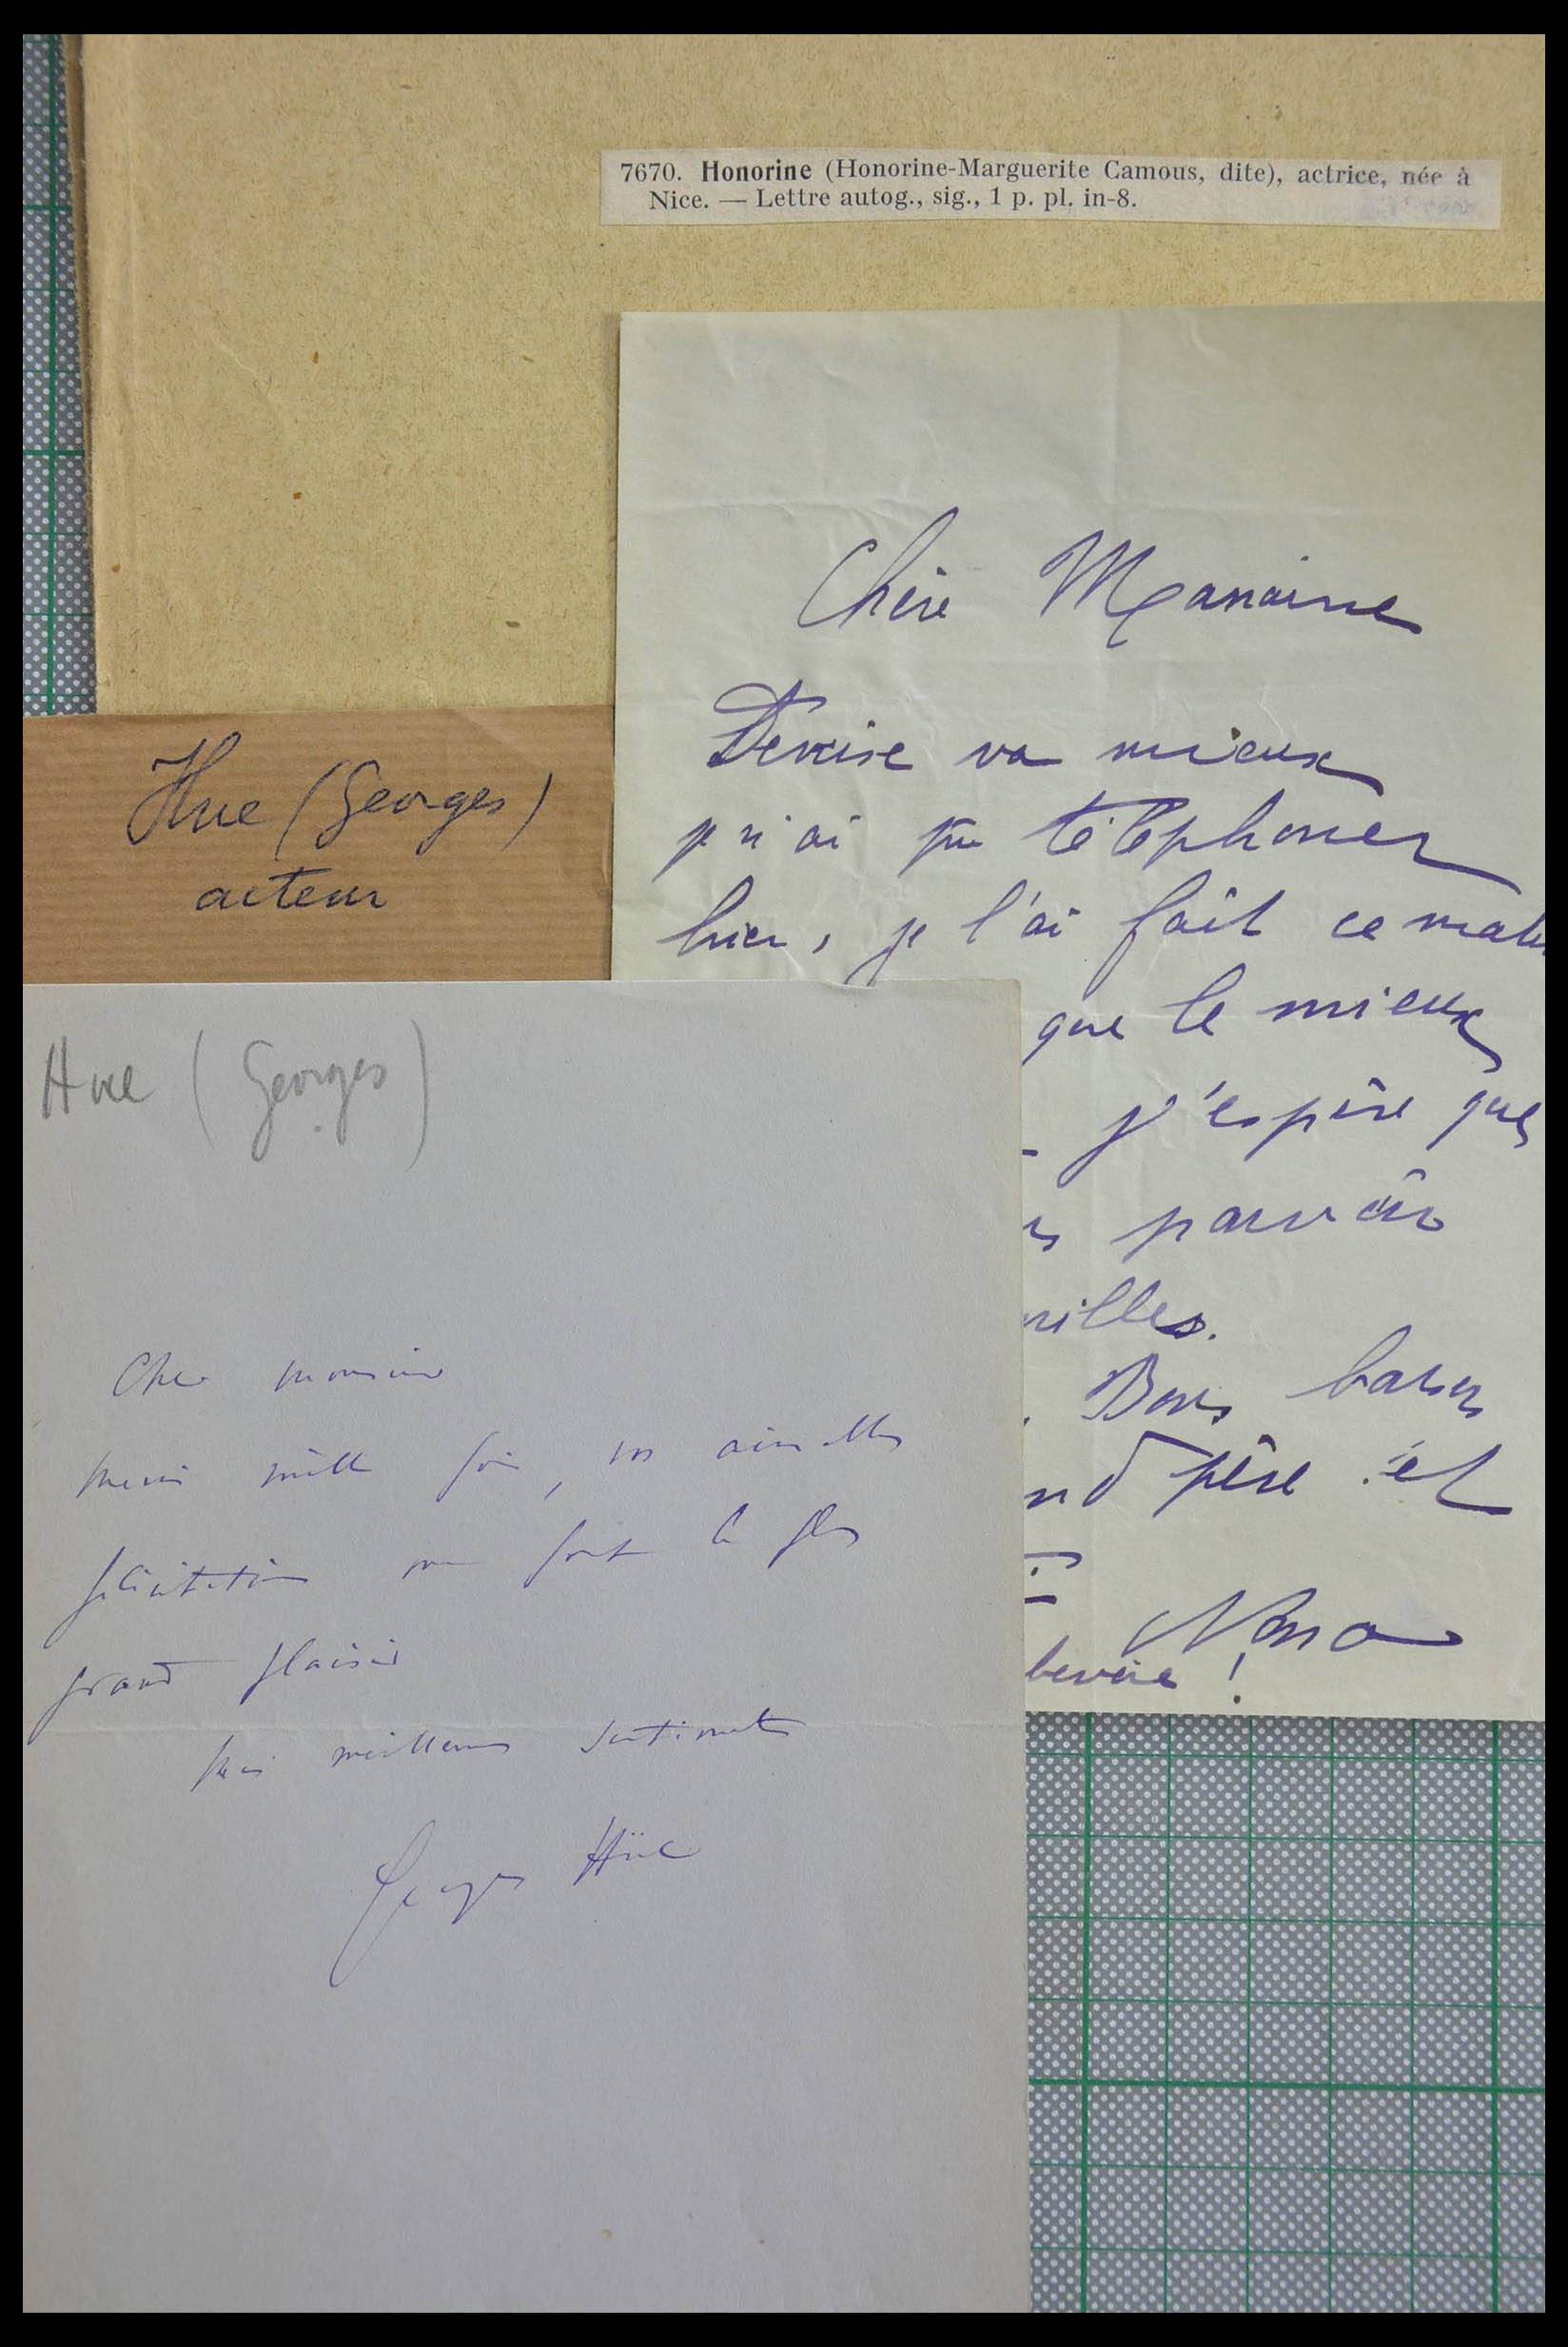 7670. Honorine (Honorine-Marguerite Camous, dite), actrice, née à
Nice. — Lettre autog., sig., 1 p. pl. in-8.
Chère Mamaine
Denise va mieux
je n'ai pu téléphoner
hier, je l'ai fait ce matin
que le mieux
j'espère que
pouvoir
milles.
Bons baisers
nd père et
Nona
bevoie !
Hue (Georges)
acteur
Hue (Georges)
Cher monsieur
merci mille fois, vos aimables
félicitations me font le plus
grand plaisir
mes meilleurs sentiments
Georges Hüe